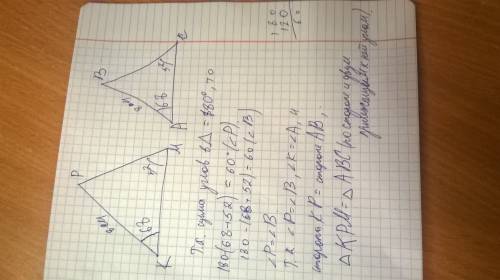 P
B
K
M
A
C
68
68
Т.к. сумма углов в Δ = 180°, то
180-(68+52) = 60° (∠P)
180 - (68+52) = 60 (∠B)
∠P = ∠B
Т.к. ∠P = ∠B, ∠K = ∠A, и
сторона KP = стороне AB,
ΔKPM = ΔABC (по стороне и двум
прилежащим к ней углам)
180
120
60